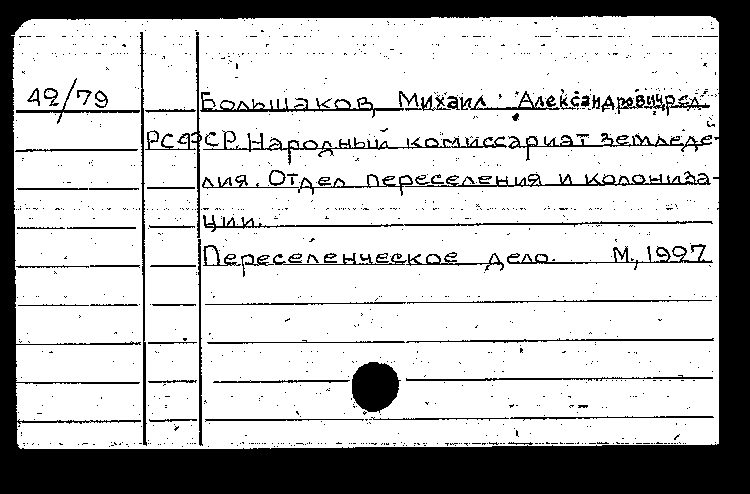 42/79 Большаков, Михаил Александрович, ред.
РСФСР. Народный комиссариат земледе-
лия. Отдел переселения и колониза-
ции.
Переселенческое дело. М., 1927